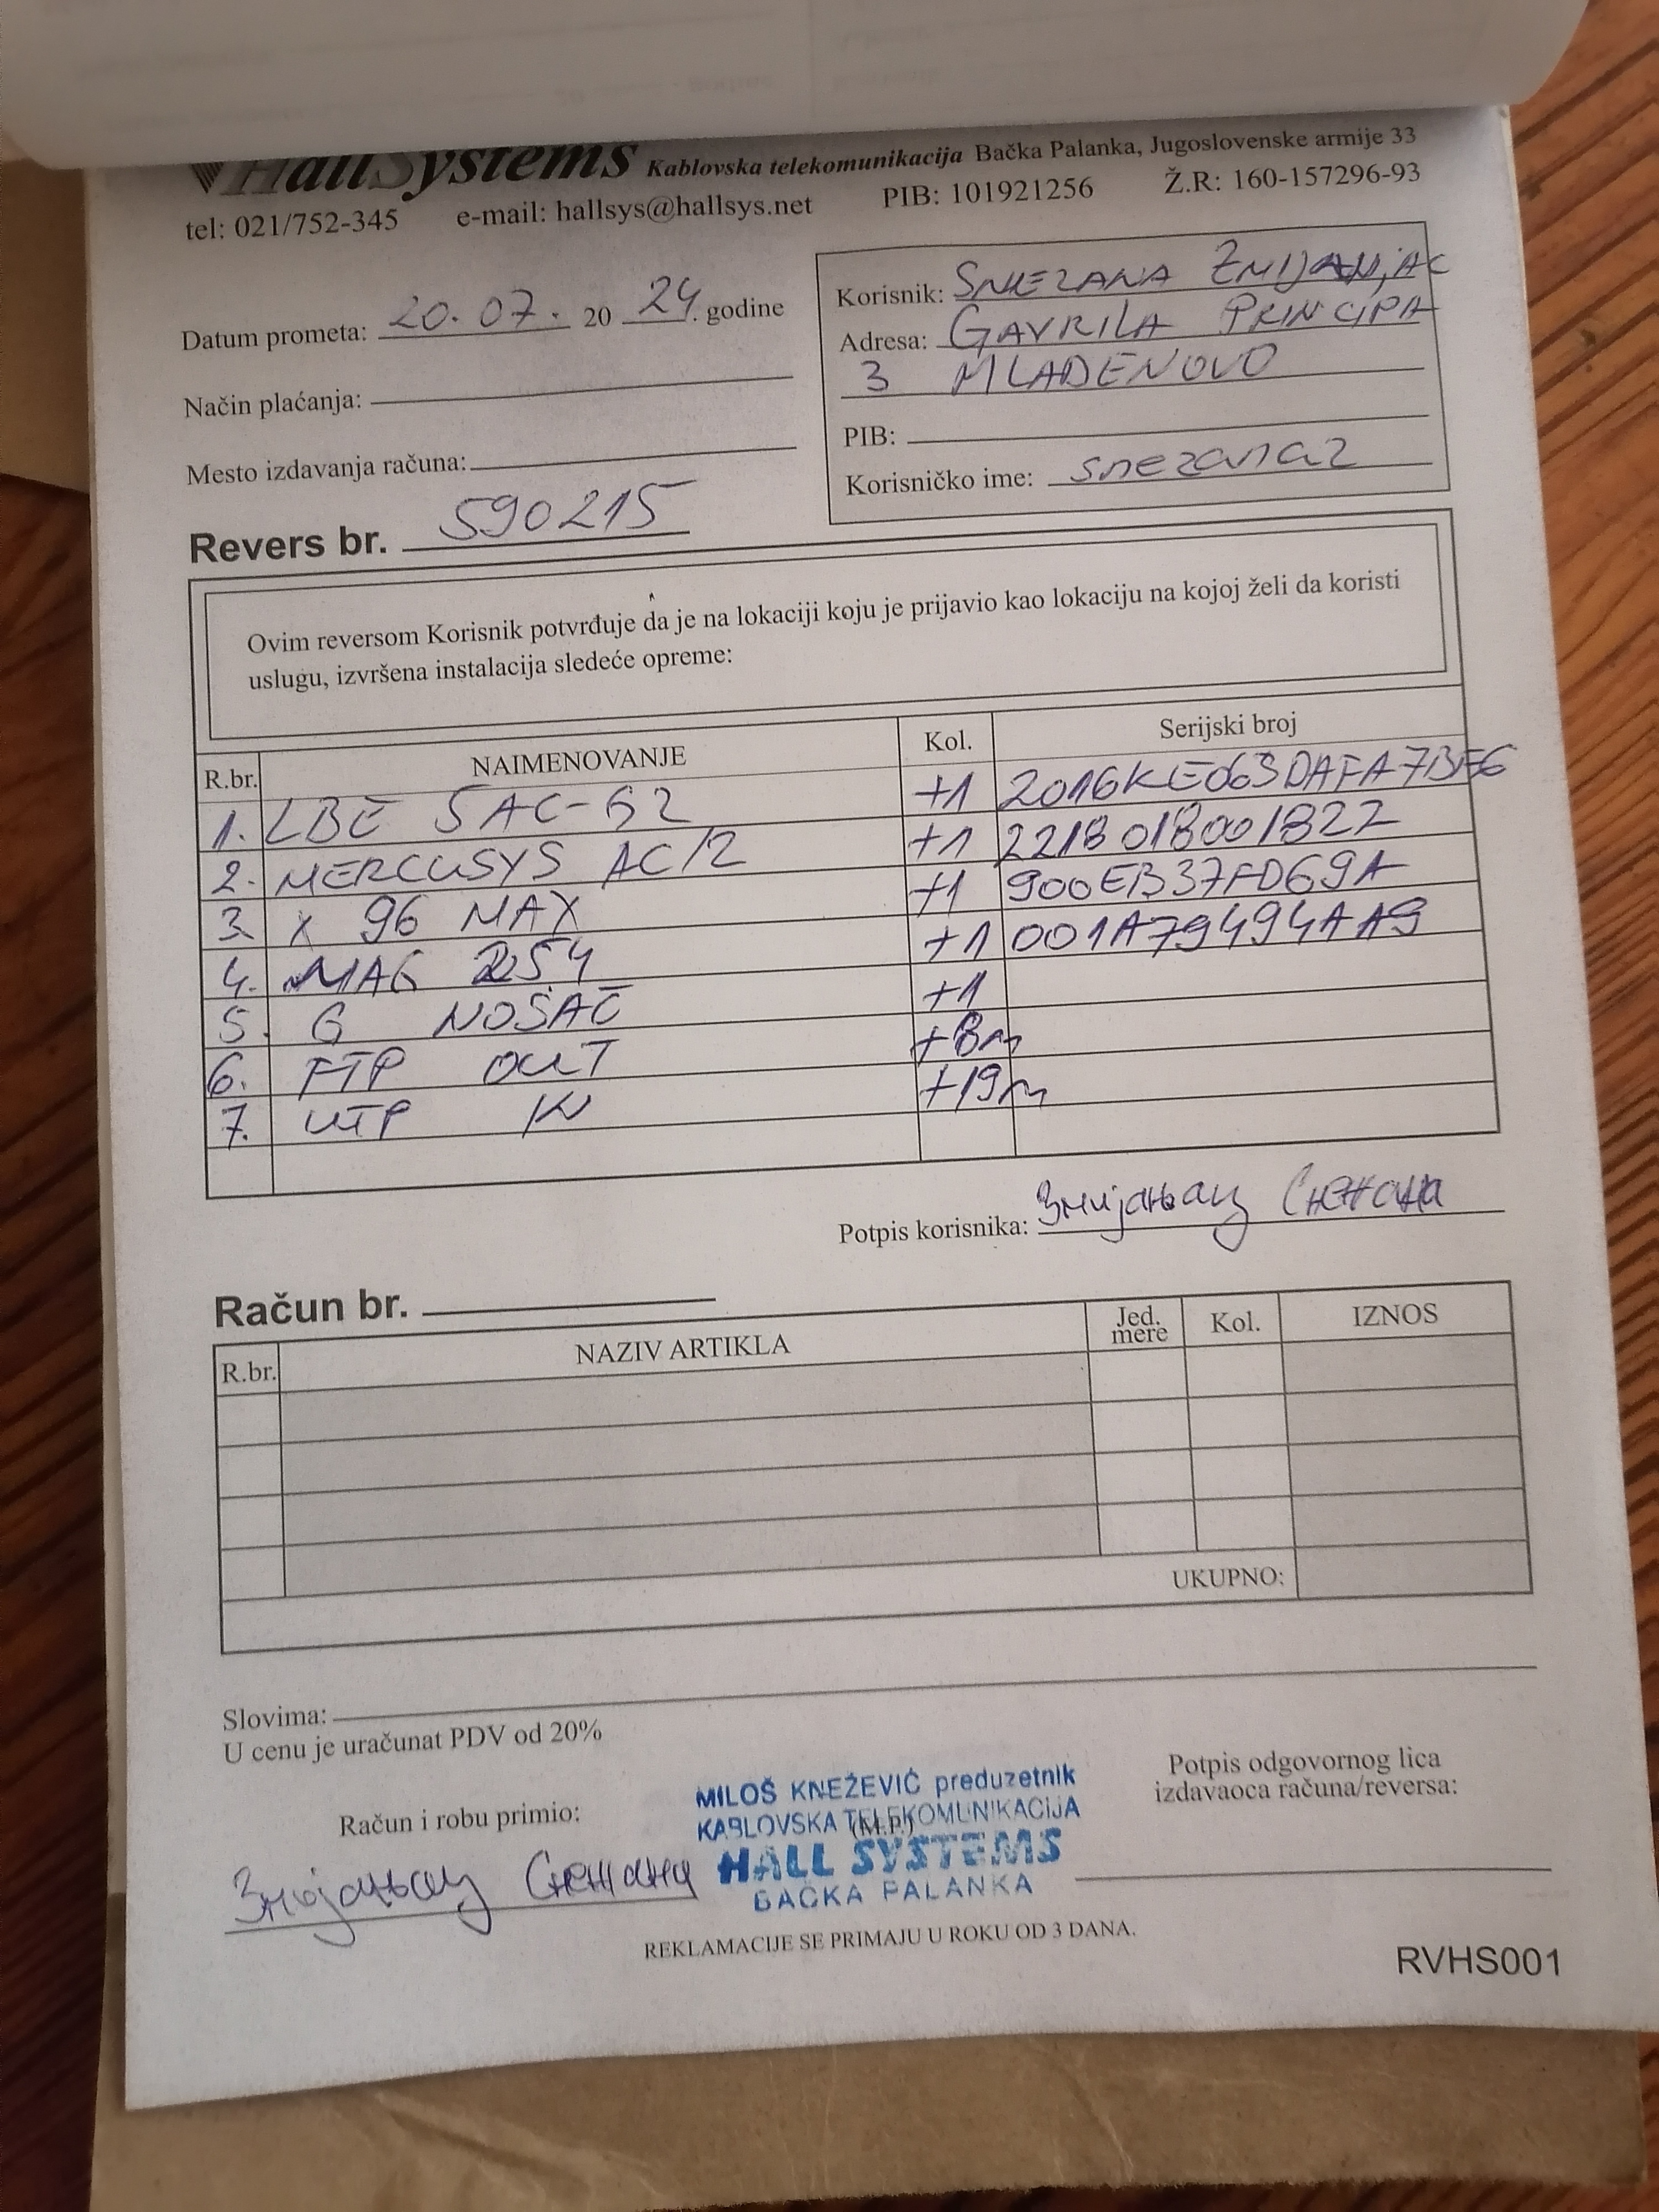 HallSystems Kablovska telekomunikacija Bačka Palanka, Jugoslovenske armije 33
tel: 021/752-345 e-mail: hallsys@hallsys.net PIB: 101921256 Ž.R: 160-157296-93
Datum prometa: 20.07. 20 24. godine
Način plaćanja:
Mesto izdavanja računa:
Korisnik: SNEZANA ZMIJANJAC
Adresa: GAVRILA PRINCIPA
3 MLADENOVO
PIB:
Korisničko ime: snezanaz
Revers br. 590215
Ovim reversom Korisnik potvrđuje da je na lokaciji koju je prijavio kao lokaciju na kojoj želi da koristi
uslugu, izvršena instalacija sledeće opreme:
R.br. NAIMENOVANJE Kol. Serijski broj
1. LBE 5AC-G2 +1 2016KE063DAFA7BF6
2. MERCUSYS AC12 +1 2218018001822
3. X 96 MAX +1 900EB37FD69A
4. MAG 254 +1 001A79494AA9
5. G NOSAČ +1
6. FTP OUT +8m
7. UTP IN +19m
Potpis korisnika: Змијањац Снежана
Račun br.
R.br. NAZIV ARTIKLA Jed. mere Kol. IZNOS
UKUPNO:
Slovima:
U cenu je uračunat PDV od 20%
Račun i robu primio:
Змијањац Снежана
MILOŠ KNEŽEVIĆ preduzetnik
KABLOVSKA TELEKOMUNIKACIJA
(M.P.)
HALL SYSTEMS
BAČKA PALANKA
Potpis odgovornog lica
izdavaoca računa/reversa:
REKLAMACIJE SE PRIMAJU U ROKU OD 3 DANA.
RVHS001